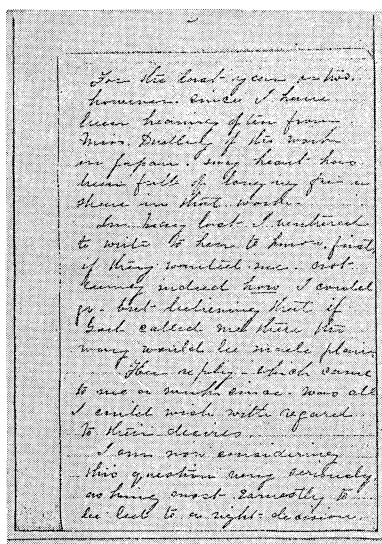 For the last year or two.
however. since I have
been hearing often from
Miss. Dudley of the work
in Japan. my heart has
been full of longing for a
share in that work.
In May last I ventured
to write to her to know first,
if they wanted me. not
seeing indeed how I could
go - but believing that if
God called me there the
way would be made plain.
Her reply - which came
to me a week since - was all
I could wish with regard
to their desires.
I am now considering
this question very seriously,
asking most earnestly to
be led to a right decision.